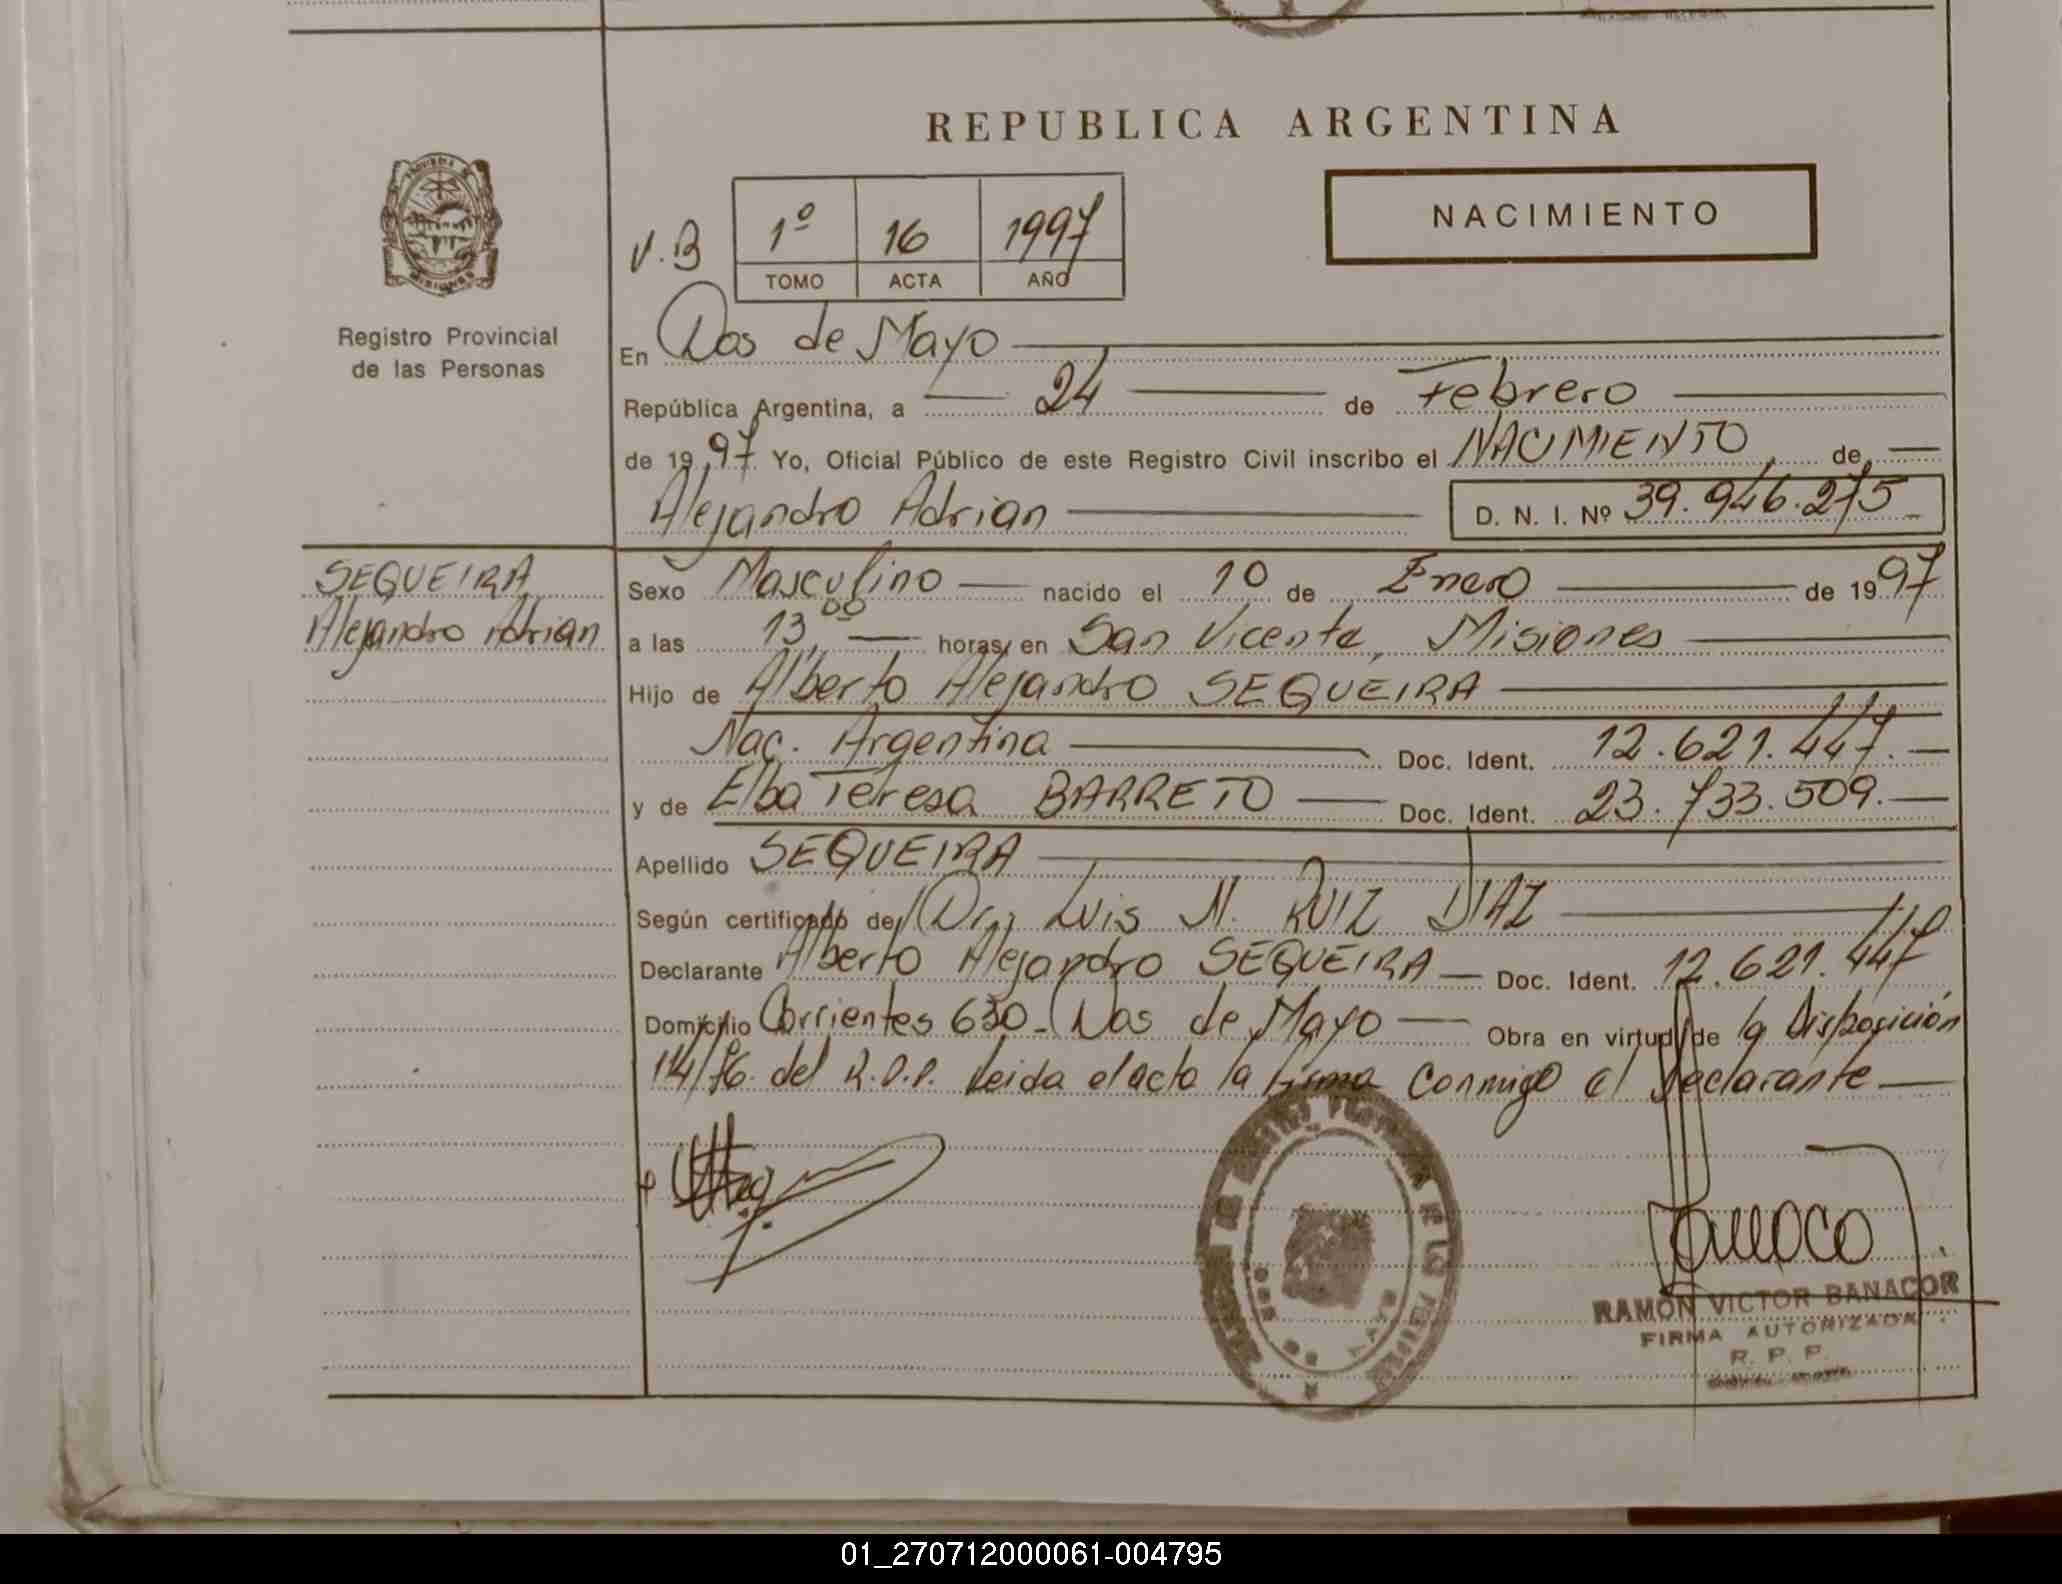 REPUBLICA ARGENTINA
NACIMIENTO
V.B
1º 16 1997
TOMO ACTA AÑO
Registro Provincial
de las Personas
En Dos de Mayo
República Argentina, a 24 de Febrero
de 1997 Yo, Oficial Público de este Registro Civil inscribo el NACIMIENTO de
Alejandro Adrian D. N. I. Nº 39.946.275
SEQUEIRA
Alejandro Adrian
Sexo Masculino nacido el 10 de Enero de 1997
a las 13,00 horas, en San Vicente, Misiones
Hijo de Alberto Alejandro SEQUEIRA
Nac. Argentina Doc. Ident. 12.621.447.
y de Elba Teresa BARRETO Doc. Ident. 23.733.509.
Apellido SEQUEIRA
Según certificado de Dr. Luis N. RUIZ DIAZ
Declarante Alberto Alejandro SEQUEIRA Doc. Ident. 12.621.447
Domicilio Corrientes 630 - Dos de Mayo Obra en virtud de la Disposición
114/76. del R.P.P. Leida el acta la firma conmigo el declarante
DOS DE MAYO
RAMON VICTOR BANACOR
FIRMA AUTORIZADA
R. P. P.
01_270712000061-004795